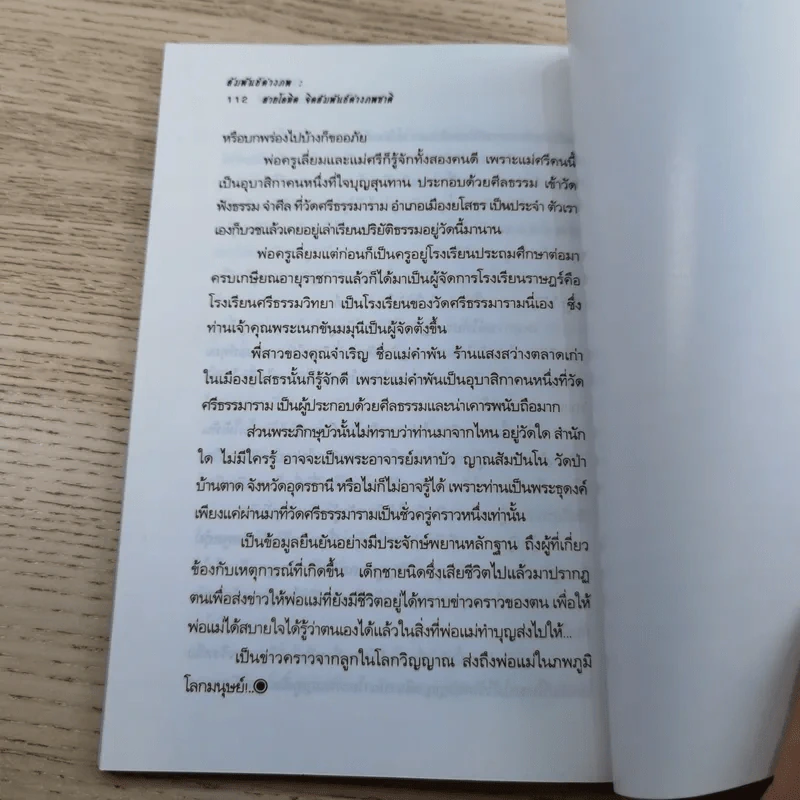 สัมพันธ์ต่างภพ :
112 สายโลหิต จิตสัมพันธ์ต่างภพชาติ
หรือบกพร่องไปบ้างก็ขออภัย
พ่อครูเลี่ยมและแม่ศรีก็รู้จักทั้งสองคนดี เพราะแม่ศรีคนนี้
เป็นอุบาสิกาคนหนึ่งที่ใจบุญสุนทาน ประกอบด้วยศีลธรรม เข้าวัด
ฟังธรรม จำศีล ที่วัดศรีธรรมาราม อำเภอเมืองยโสธร เป็นประจำ ตัวเรา
เองก็บวชแล้วเคยอยู่เล่าเรียนปริยัติธรรมอยู่วัดนี้มานาน
พ่อครูเลี่ยมแต่ก่อนก็เป็นครูอยู่โรงเรียนประถมศึกษาต่อมา
ครบเกษียณอายุราชการแล้วก็ได้มาเป็นผู้จัดการโรงเรียนราษฎร์คือ
โรงเรียนศรีธรรมวิทยา เป็นโรงเรียนของวัดศรีธรรมารามนี่เอง ซึ่ง
ท่านเจ้าคุณพระเนกขัมมมุนีเป็นผู้จัดตั้งขึ้น
พี่สาวของคุณจำเริญ ชื่อแม่คำพัน ร้านแสงสว่างตลาดเก่า
ในเมืองยโสธรนั้นก็รู้จักดี เพราะแม่คำพันเป็นอุบาสิกาคนหนึ่งที่วัด
ศรีธรรมาราม เป็นผู้ประกอบด้วยศีลธรรมและน่าเคารพนับถือมาก
ส่วนพระภิกษุบัวนั้นไม่ทราบว่าท่านมาจากไหน อยู่วัดใด สำนัก
ใด ไม่มีใครรู้ อาจจะเป็นพระอาจารย์มหาบัว ญาณสัมปันโน วัดป่า
บ้านตาด จังหวัดอุดรธานี หรือไม่ก็ไม่อาจรู้ได้ เพราะท่านเป็นพระธุดงค์
เพียงแค่ผ่านมาที่วัดศรีธรรมารามเป็นชั่วครู่คราวหนึ่งเท่านั้น
เป็นข้อมูลยืนยันอย่างมีประจักษ์พยานหลักฐาน ถึงผู้ที่เกี่ยว
ข้องกับเหตุการณ์ที่เกิดขึ้น เด็กชายนิดซึ่งเสียชีวิตไปแล้วมาปรากฏ
ตนเพื่อส่งข่าวให้พ่อแม่ที่ยังมีชีวิตอยู่ได้ทราบข่าวคราวของตน เพื่อให้
พ่อแม่ได้สบายใจได้รู้ว่าตนเองได้แล้วในสิ่งที่พ่อแม่ทำบุญส่งไปให้...
เป็นข่าวคราวจากลูกในโลกวิญญาณ ส่งถึงพ่อแม่ในภพภูมิ
โลกมนุษย์!..◉